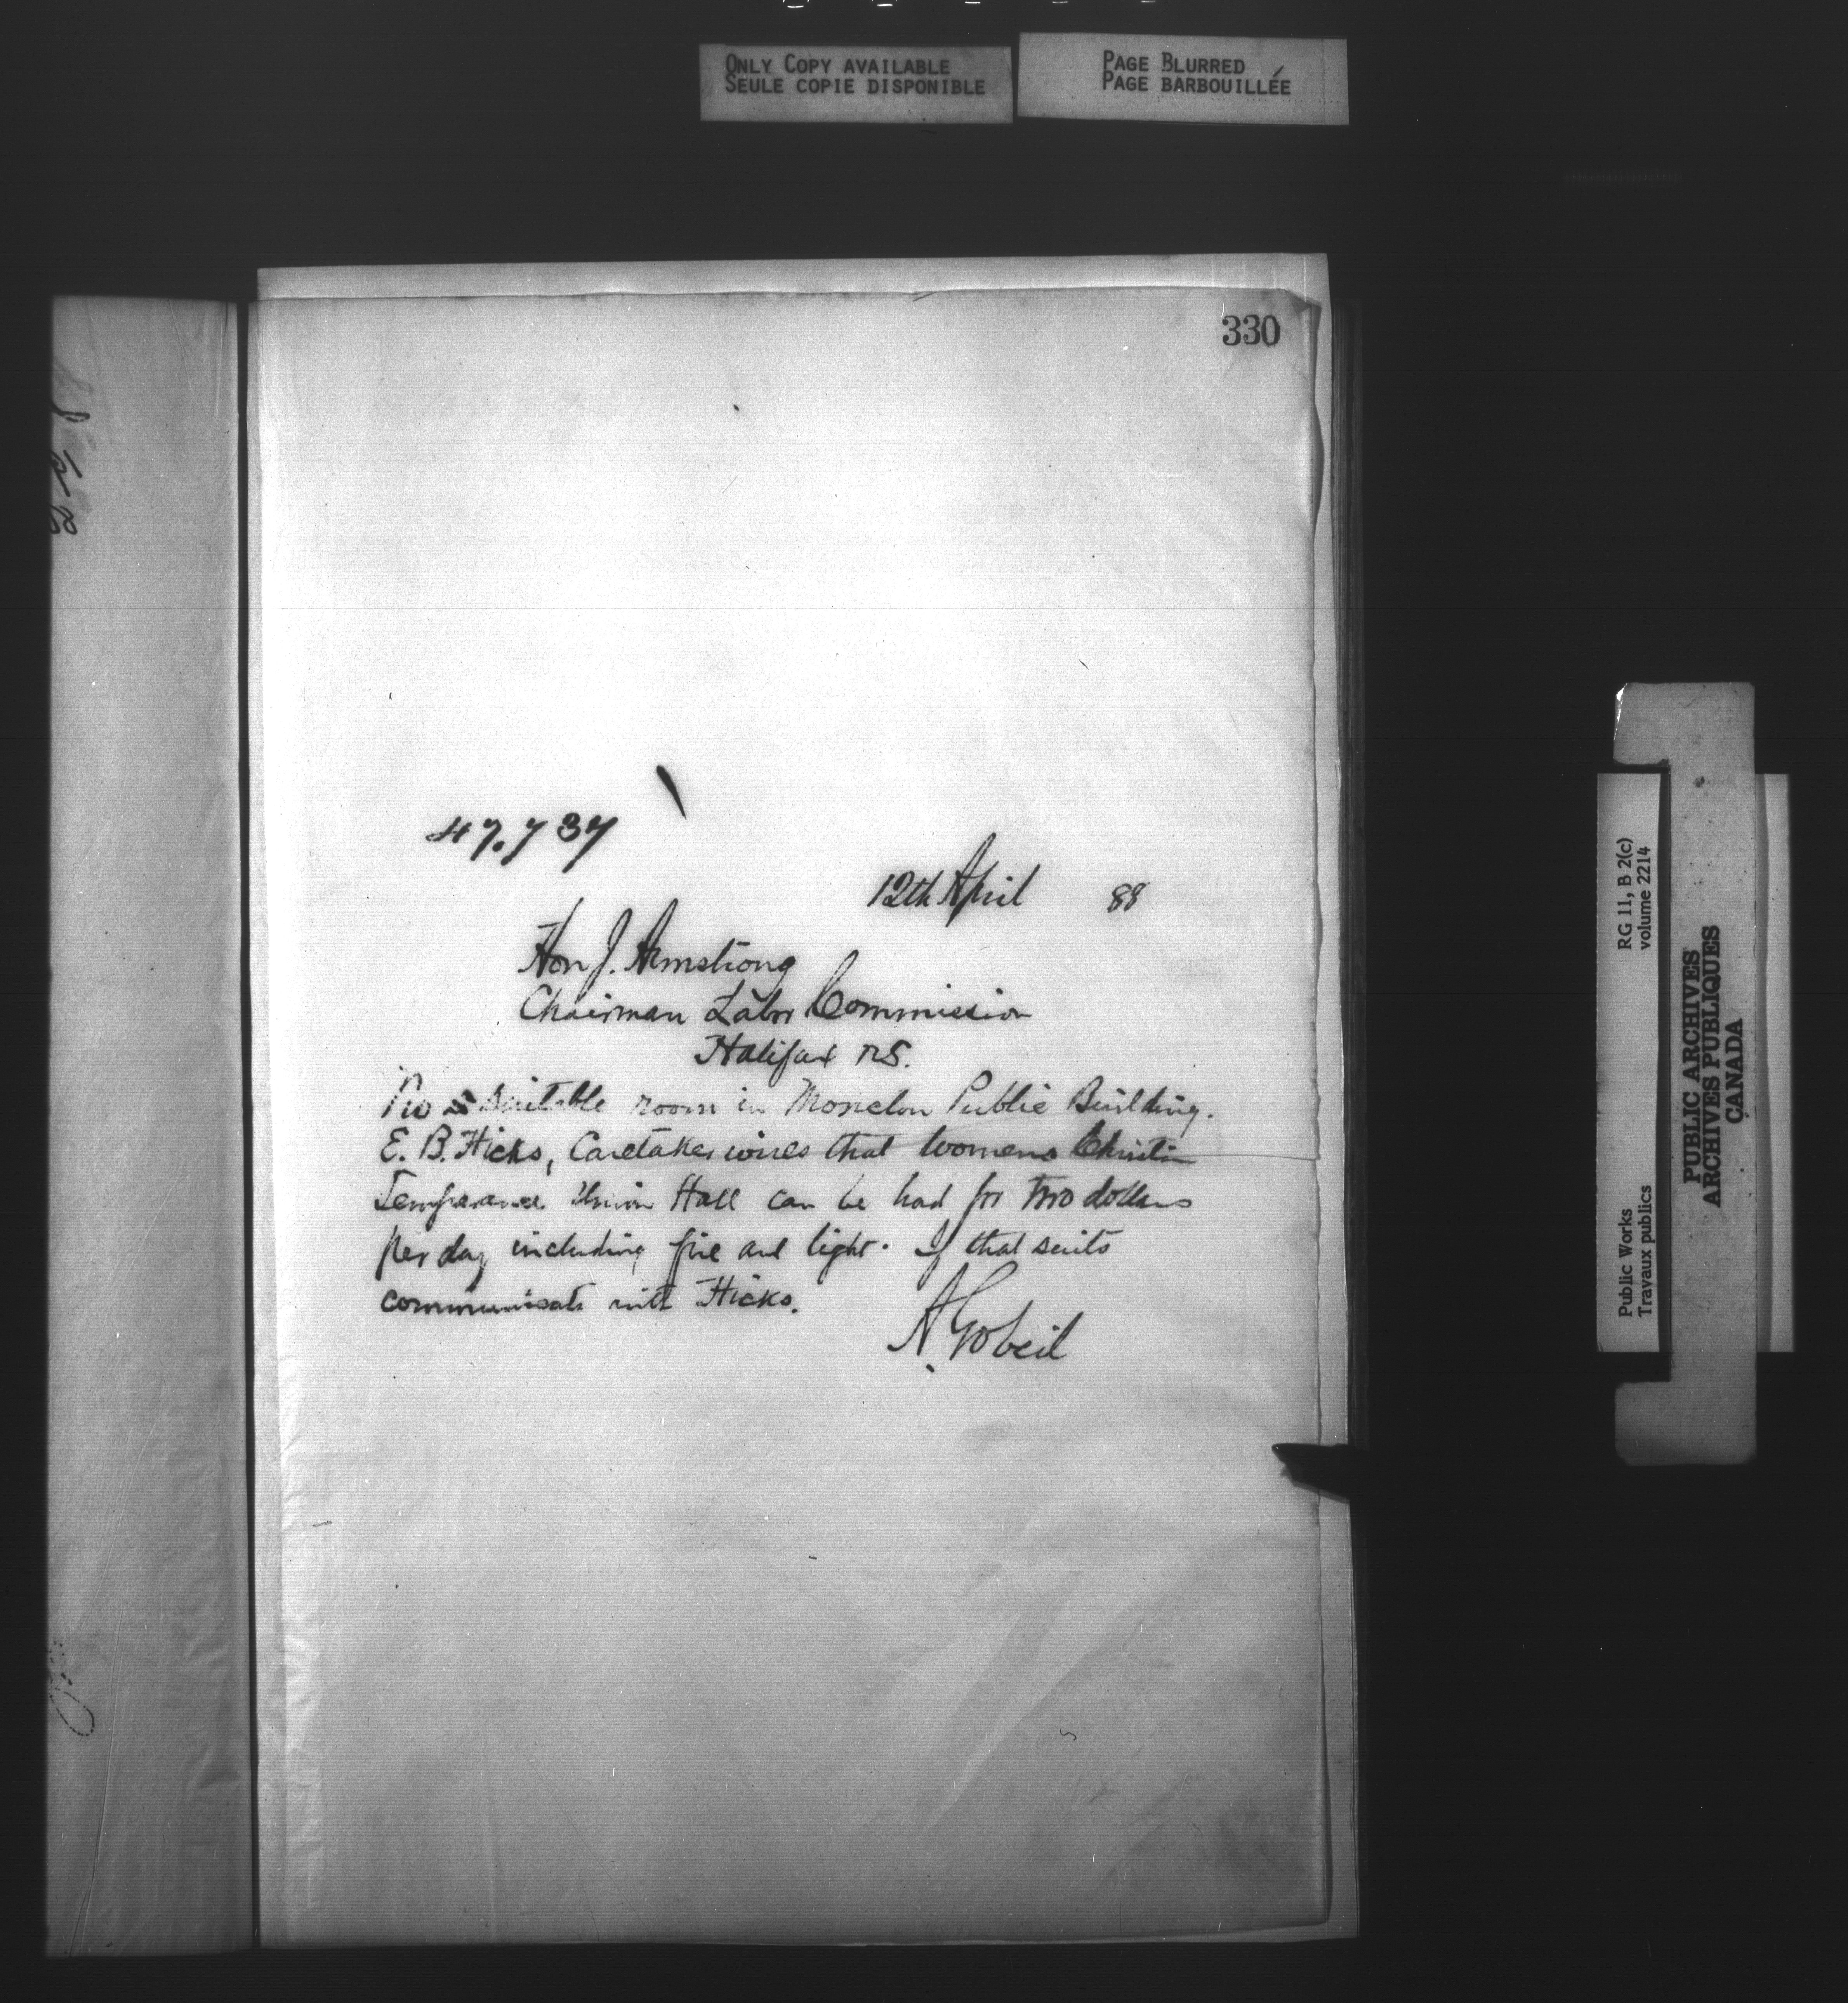 ONLY COPY AVAILABLE
SEULE COPIE DISPONIBLE
PAGE BLURRED
PAGE BARBOUILLÉE
330
47.737
12th April 88
Hon J. Armstrong
Chairman Labor Commission
Halifax NS.
No suitable room in Moncton Public Building.
E. B. Hicks, Caretaker wires that Womens Christian
Temperance Union Hall can be had for two dollars
per day including fire and light. If that suits
communicate with Hicks.
A. Gobeil
RG 11, B 2(c)
volume 2214
Public Works
Travaux publics
PUBLIC ARCHIVES
ARCHIVES PUBLIQUES
CANADA